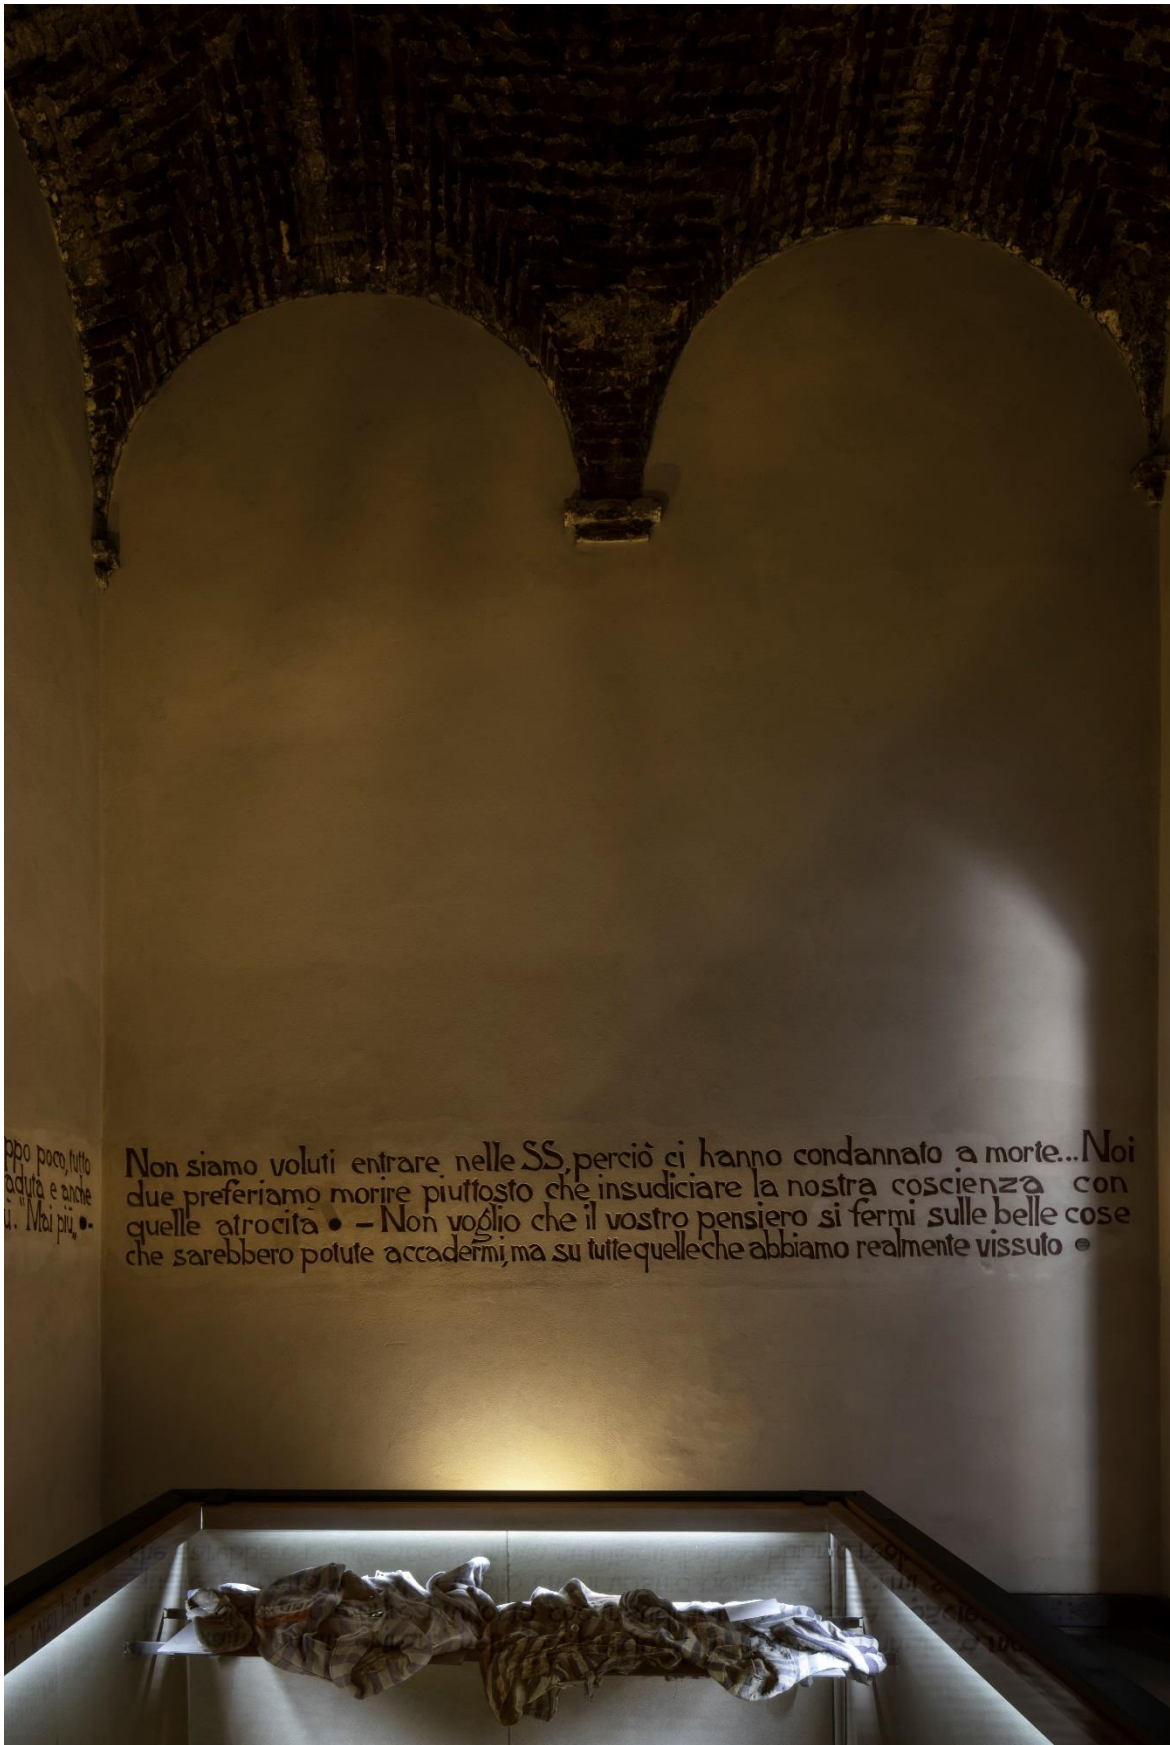 ppo poco, tutto
aduta e anche
ù. "Mai più„ •-
Non siamo voluti entrare nelle SS, perciò ci hanno condannato a morte... Noi
due preferiamo morire piuttosto che insudiciare la nostra coscienza con
quelle atrocità • – Non voglio che il vostro pensiero si fermi sulle belle cose
che sarebbero potute accadermi, ma su tutte quelle che abbiamo realmente vissuto •